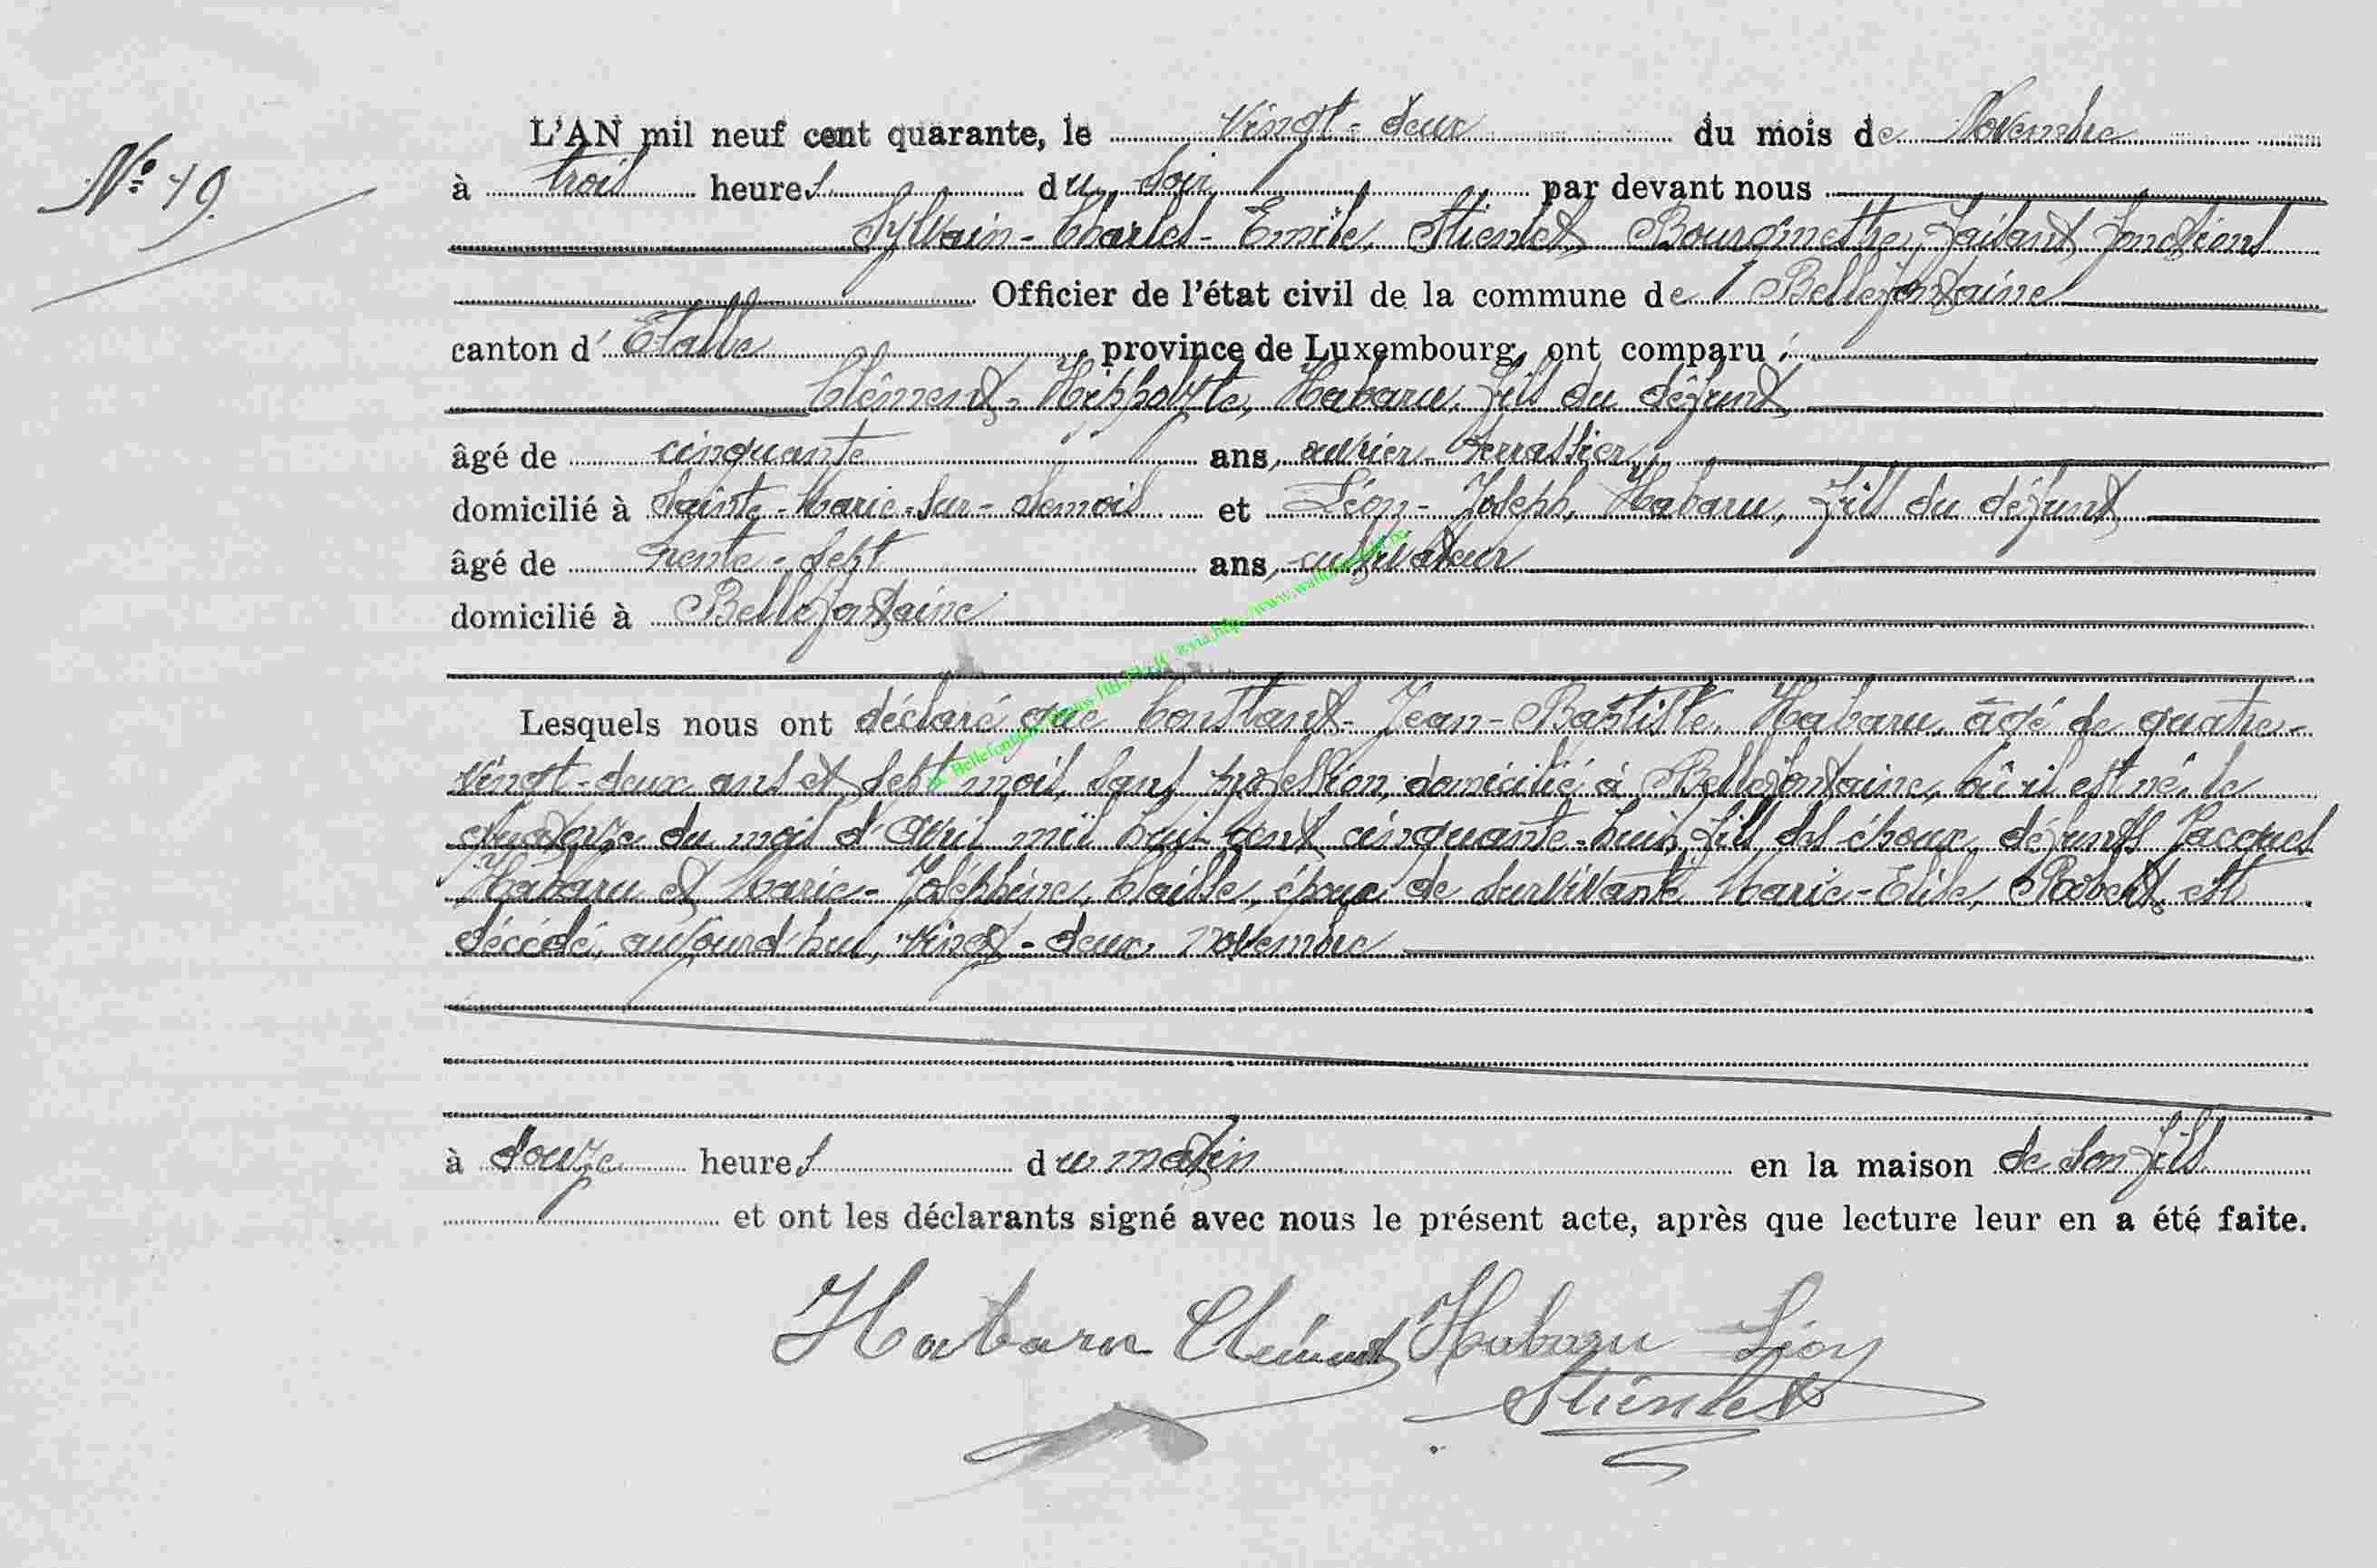 L'AN mil neuf cent quarante, le vingt-deux du mois de Novembre
N° 19.
à trois heures du soir, par devant nous
Sylvain-Charles-Emile, Stienlet, Bourgmestre, faisant fonctions
Officier de l'état civil de la commune de Bellefontaine
canton d'Etalle, province de Luxembourg, ont comparu:
Clément-Hippolyte, Habaru, fils du défunt
âgé de cinquante ans, ouvrier-terrassier,
domicilié à Sainte-Marie-sur-Semois et Léon-Joseph, Habaru, fils du défunt
âgé de trente-sept ans, cultivateur
domicilié à Bellefontaine
Lesquels nous ont déclaré que Constant-Jean-Baptiste, Habaru, âgé de quatre-
vingt-deux ans et sept mois, sans profession, domicilié à Bellefontaine, où il est né, le
quatorze du mois d'Avril mil huit cent cinquante-huit, fils des époux défunts Jacques
Habaru et Marie-Joséphine, Claisse, époux de survivante Marie-Elise, Robert, est
décédé, aujourd'hui, vingt-deux novembre
à douze heures du matin en la maison de son fils
et ont les déclarants signé avec nous le présent acte, après que lecture leur en a été faite.
Habaru Clément Habaru Léon
Stienlet